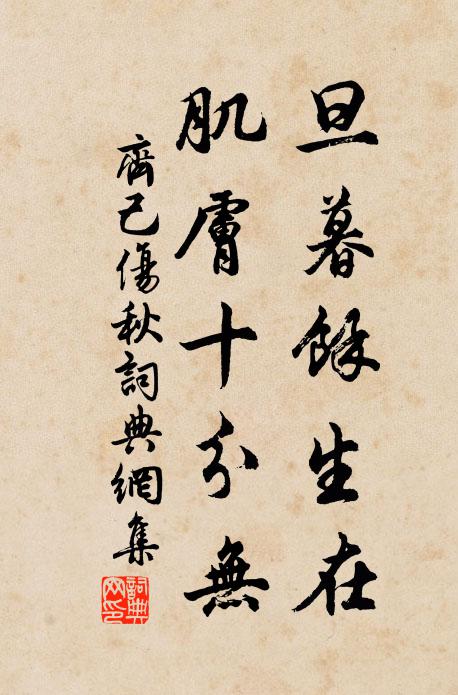 旦暮餘生在
肌膚十分無
齊己傷秋詞典網集
詞典網印